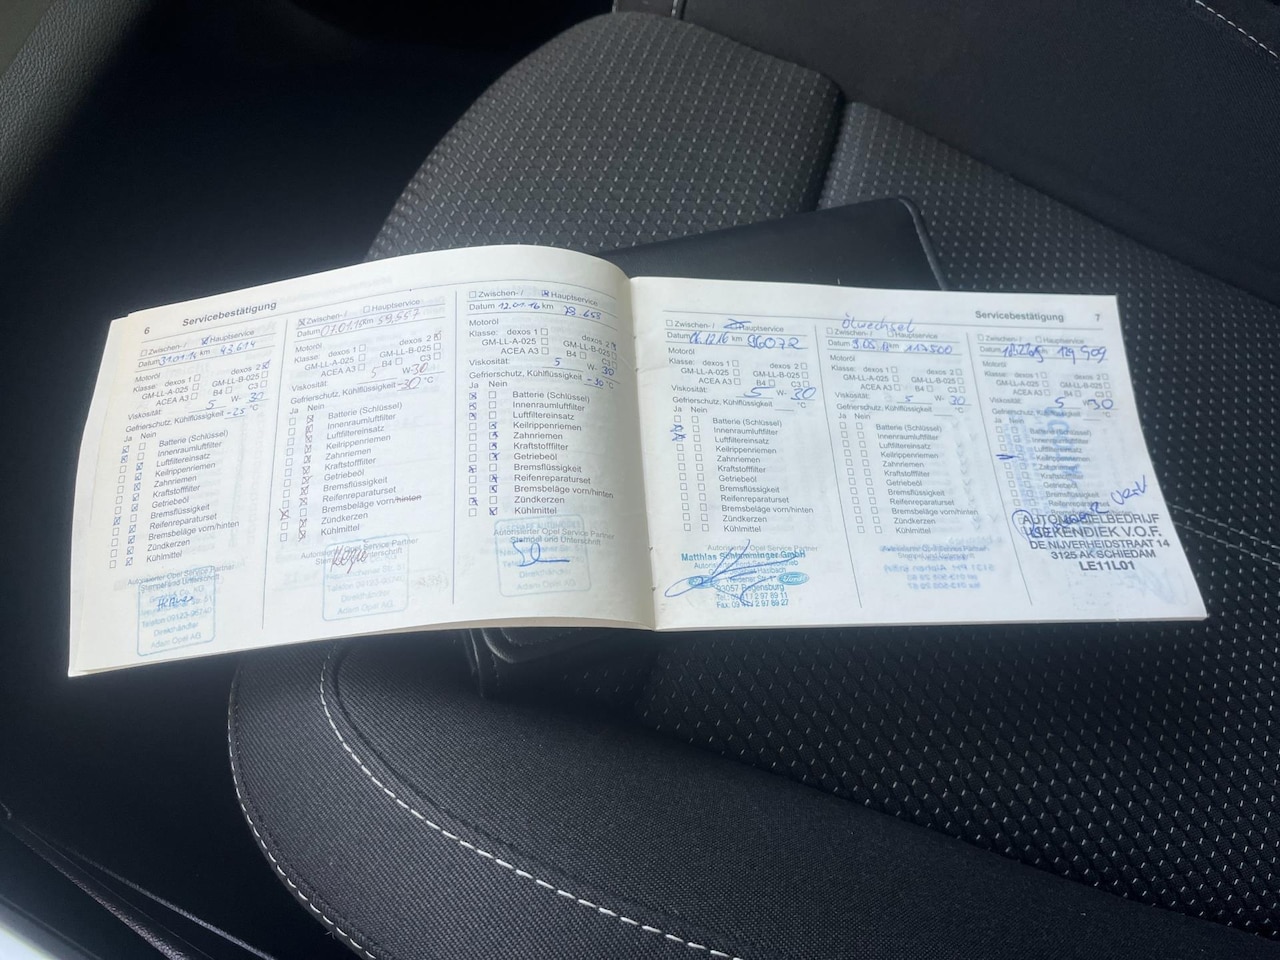 6 Servicebestätigung
Zwischen- / Hauptservice
Datum 31.01.14 km 43.614
Motoröl
Klasse: dexos 1 dexos 2
GM-LL-A-025 GM-LL-B-025
ACEA A3 B4 C3
Viskosität: 5 W- 30
Gefrierschutz, Kühlflüssigkeit -25 °C
Ja Nein
Batterie (Schlüssel)
Innenraumluftfilter
Luftfiltereinsatz
Keilrippenriemen
Zahnriemen
Kraftstofffilter
Getriebeöl
Bremsflüssigkeit
Reifenreparaturset
Bremsbeläge vorn/hinten
Zündkerzen
Kühlmittel
Autorisierter Opel Service Partner
Stempel und Unterschrift
Direkthändler
Adam Opel AG
Zwischen- / Hauptservice
Datum 07.01.15 km 59,557
Motoröl
Klasse: dexos 1 dexos 2
GM-LL-A-025 GM-LL-B-025
ACEA A3 B4 C3
Viskosität: 5 W- 30
Gefrierschutz, Kühlflüssigkeit -30 °C
Ja Nein
Batterie (Schlüssel)
Innenraumluftfilter
Luftfiltereinsatz
Keilrippenriemen
Zahnriemen
Kraftstofffilter
Getriebeöl
Bremsflüssigkeit
Reifenreparaturset
Bremsbeläge vorn/hinten
Zündkerzen
Kühlmittel
Service Partner
Direkthändler
Adam Opel AG
Zwischen- / Hauptservice
Datum 12.01.16 km 78.658
Motoröl
Klasse: dexos 1 dexos 2
GM-LL-A-025 GM-LL-B-025
ACEA A3 B4 C3
Viskosität: 5 W- 30
Gefrierschutz, Kühlflüssigkeit -30 °C
Ja Nein
Batterie (Schlüssel)
Innenraumluftfilter
Luftfiltereinsatz
Keilrippenriemen
Zahnriemen
Kraftstofffilter
Getriebeöl
Bremsflüssigkeit
Reifenreparaturset
Bremsbeläge vorn/hinten
Zündkerzen
Kühlmittel
Autorisierter Opel Service Partner
Stempel und Unterschrift
Direkthändler
Adam Opel AG
Servicebestätigung 7
Zwischen- / Hauptservice
Datum 06.12.16 km 96072
Motoröl
Klasse: dexos 1 dexos 2
GM-LL-A-025 GM-LL-B-025
ACEA A3 B4 C3
Viskosität: 5 W- 30
Gefrierschutz, Kühlflüssigkeit °C
Ja Nein
Batterie (Schlüssel)
Innenraumluftfilter
Luftfiltereinsatz
Keilrippenriemen
Zahnriemen
Kraftstofffilter
Getriebeöl
Bremsflüssigkeit
Reifenreparaturset
Bremsbeläge vorn/hinten
Zündkerzen
Kühlmittel
Autorisierter Opel Service Partner
Matthias GmbH
93057 Regensburg
Ölwechsel
Zwischen- / Hauptservice
Datum km 113500
Motoröl
Klasse: dexos 1 dexos 2
GM-LL-A-025 GM-LL-B-025
ACEA A3 B4 C3
Viskosität: 5 W- 30
Gefrierschutz, Kühlflüssigkeit °C
Ja Nein
Batterie (Schlüssel)
Innenraumluftfilter
Luftfiltereinsatz
Keilrippenriemen
Zahnriemen
Kraftstofffilter
Getriebeöl
Bremsflüssigkeit
Reifenreparaturset
Bremsbeläge vorn/hinten
Zündkerzen
Kühlmittel
Zwischen- / Hauptservice
Datum 129 509
Motoröl
Klasse: dexos 1 dexos 2
GM-LL-A-025 GM-LL-B-025
ACEA A3 B4 C3
Viskosität: 5 W- 30
Gefrierschutz, Kühlflüssigkeit °C
Ja Nein
Batterie (Schlüssel)
Innenraumluftfilter
Luftfiltereinsatz
Keilrippenriemen
Zahnriemen
Kraftstofffilter
Getriebeöl
Bremsflüssigkeit
AUTOMOBIELBEDRIJF
BEKENDIEK V.O.F.
DE NIJVERHEIDSTRAAT 14
3125 AK SCHIEDAM
LE11L01